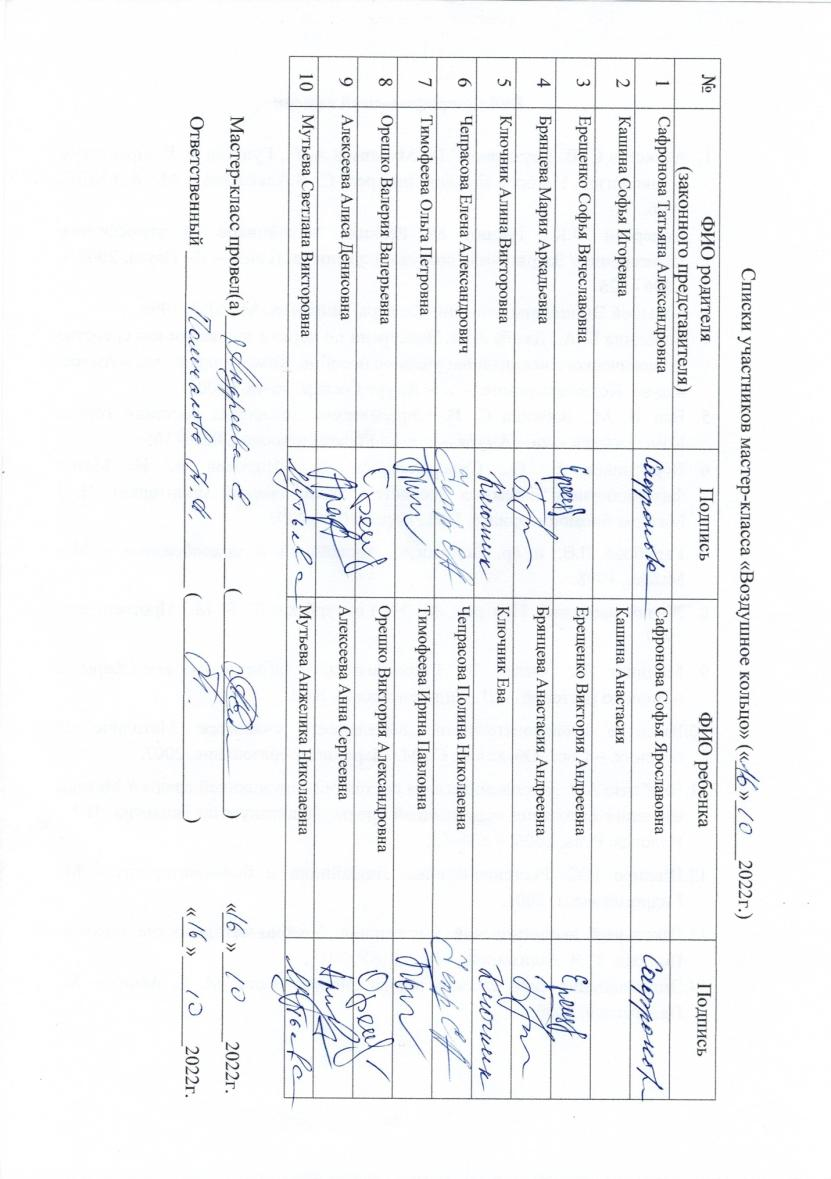 Списки участников мастер-класса «Воздушное кольцо» («16» 10 2022г.)
№ ФИО родителя (законного представителя) Подпись ФИО ребенка Подпись
1 Сафронова Татьяна Александровна Сафронова Сафронова Софья Ярославовна Сафронова
2 Кашина Софья Игоревна Кашина Анастасия
3 Ерещенко Софья Вячеславовна Ерещ Ерещенко Виктория Андреевна Ерещ
4 Брянцева Мария Аркадьевна Брянцева Анастасия Андреевна
5 Ключник Алина Викторовна Ключник Ключник Ева Ключник
6 Чепрасова Елена Александрович Чепрасова Полина Николаевна
7 Тимофеева Ольга Петровна Тимофеева Ирина Павловна
8 Орешко Валерия Валерьевна Орешко Виктория Александровна
9 Алексеева Алиса Денисовна Алексеева Анна Сергеевна
10 Мутьева Светлана Викторовна Мутьева Мутьева Анжелика Николаевна Мутьева
Мастер-класс провел(а) Андреева Е ( ) «16» 10 2022г.
Ответственный ( ) «16» 10 2022г.